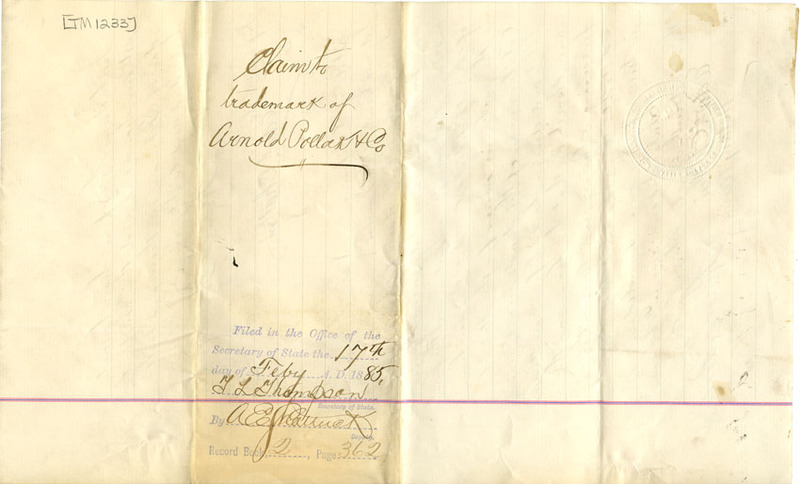 [TM 1233]
Claim to
trademark of
Arnold Pollak & Co
Filed in the Office of the
Secretary of State the 17th
day of Feby A. D. 1885,
T. L. Thompson
Secretary of State.
By A. E. Shattuck
Deputy.
Record Book 2, Page 362